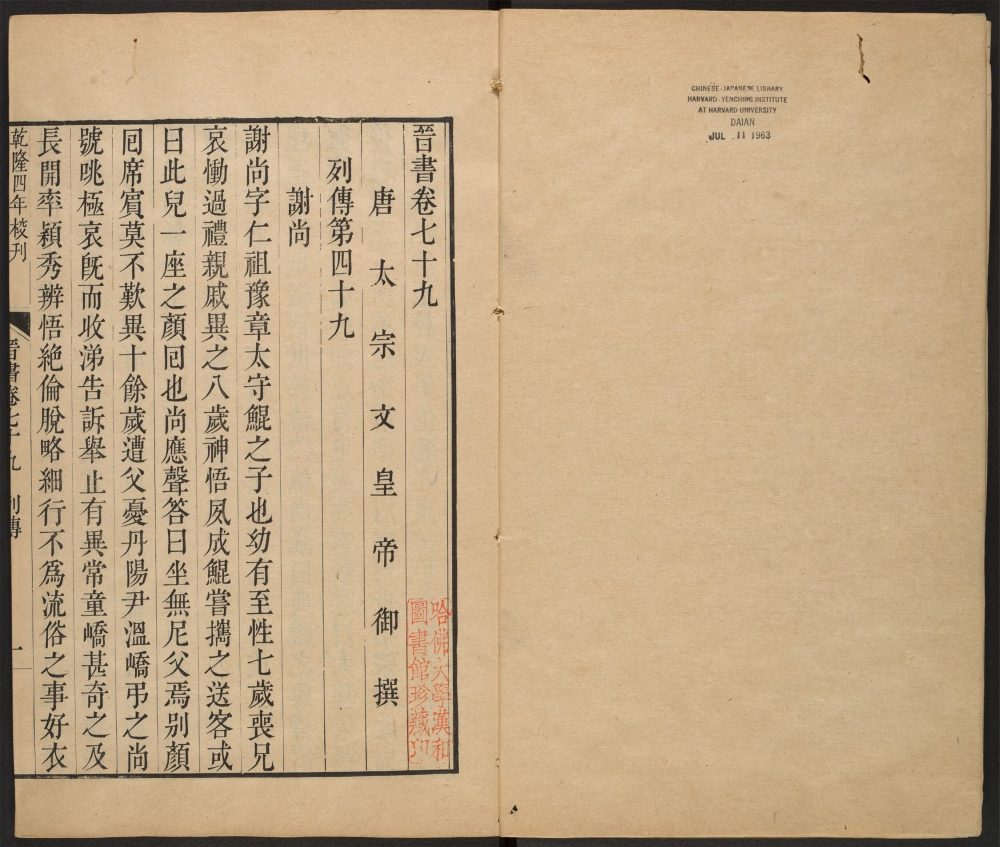 CHINESE-JAPANESE LIBRARY
HARVARD-YENCHING INSTITUTE
AT HARVARD UNIVERSITY
DAIAN
JUL 11 1963
晉書卷七十九
唐太宗文皇帝御撰
列傳第四十九
謝尚
謝尚字仁祖豫章太守鯤之子也幼有至性七歲喪兄
哀慟過禮親戚異之八歲神悟夙成鯤嘗攜之送客或
曰此兒一座之顏囘也尚應聲答曰坐無尼父焉别顏
囘席賔莫不歎異十餘歲遭父憂丹陽尹溫嶠弔之尚
號咷極哀旣而收涕告訴舉止有異常童嶠甚奇之及
長開率穎秀辨悟絶倫脫略細行不爲流俗之事好衣
乾隆四年校刊
晉書卷七十九
列傳
一
哈佛大學漢和
圖書館珍藏印